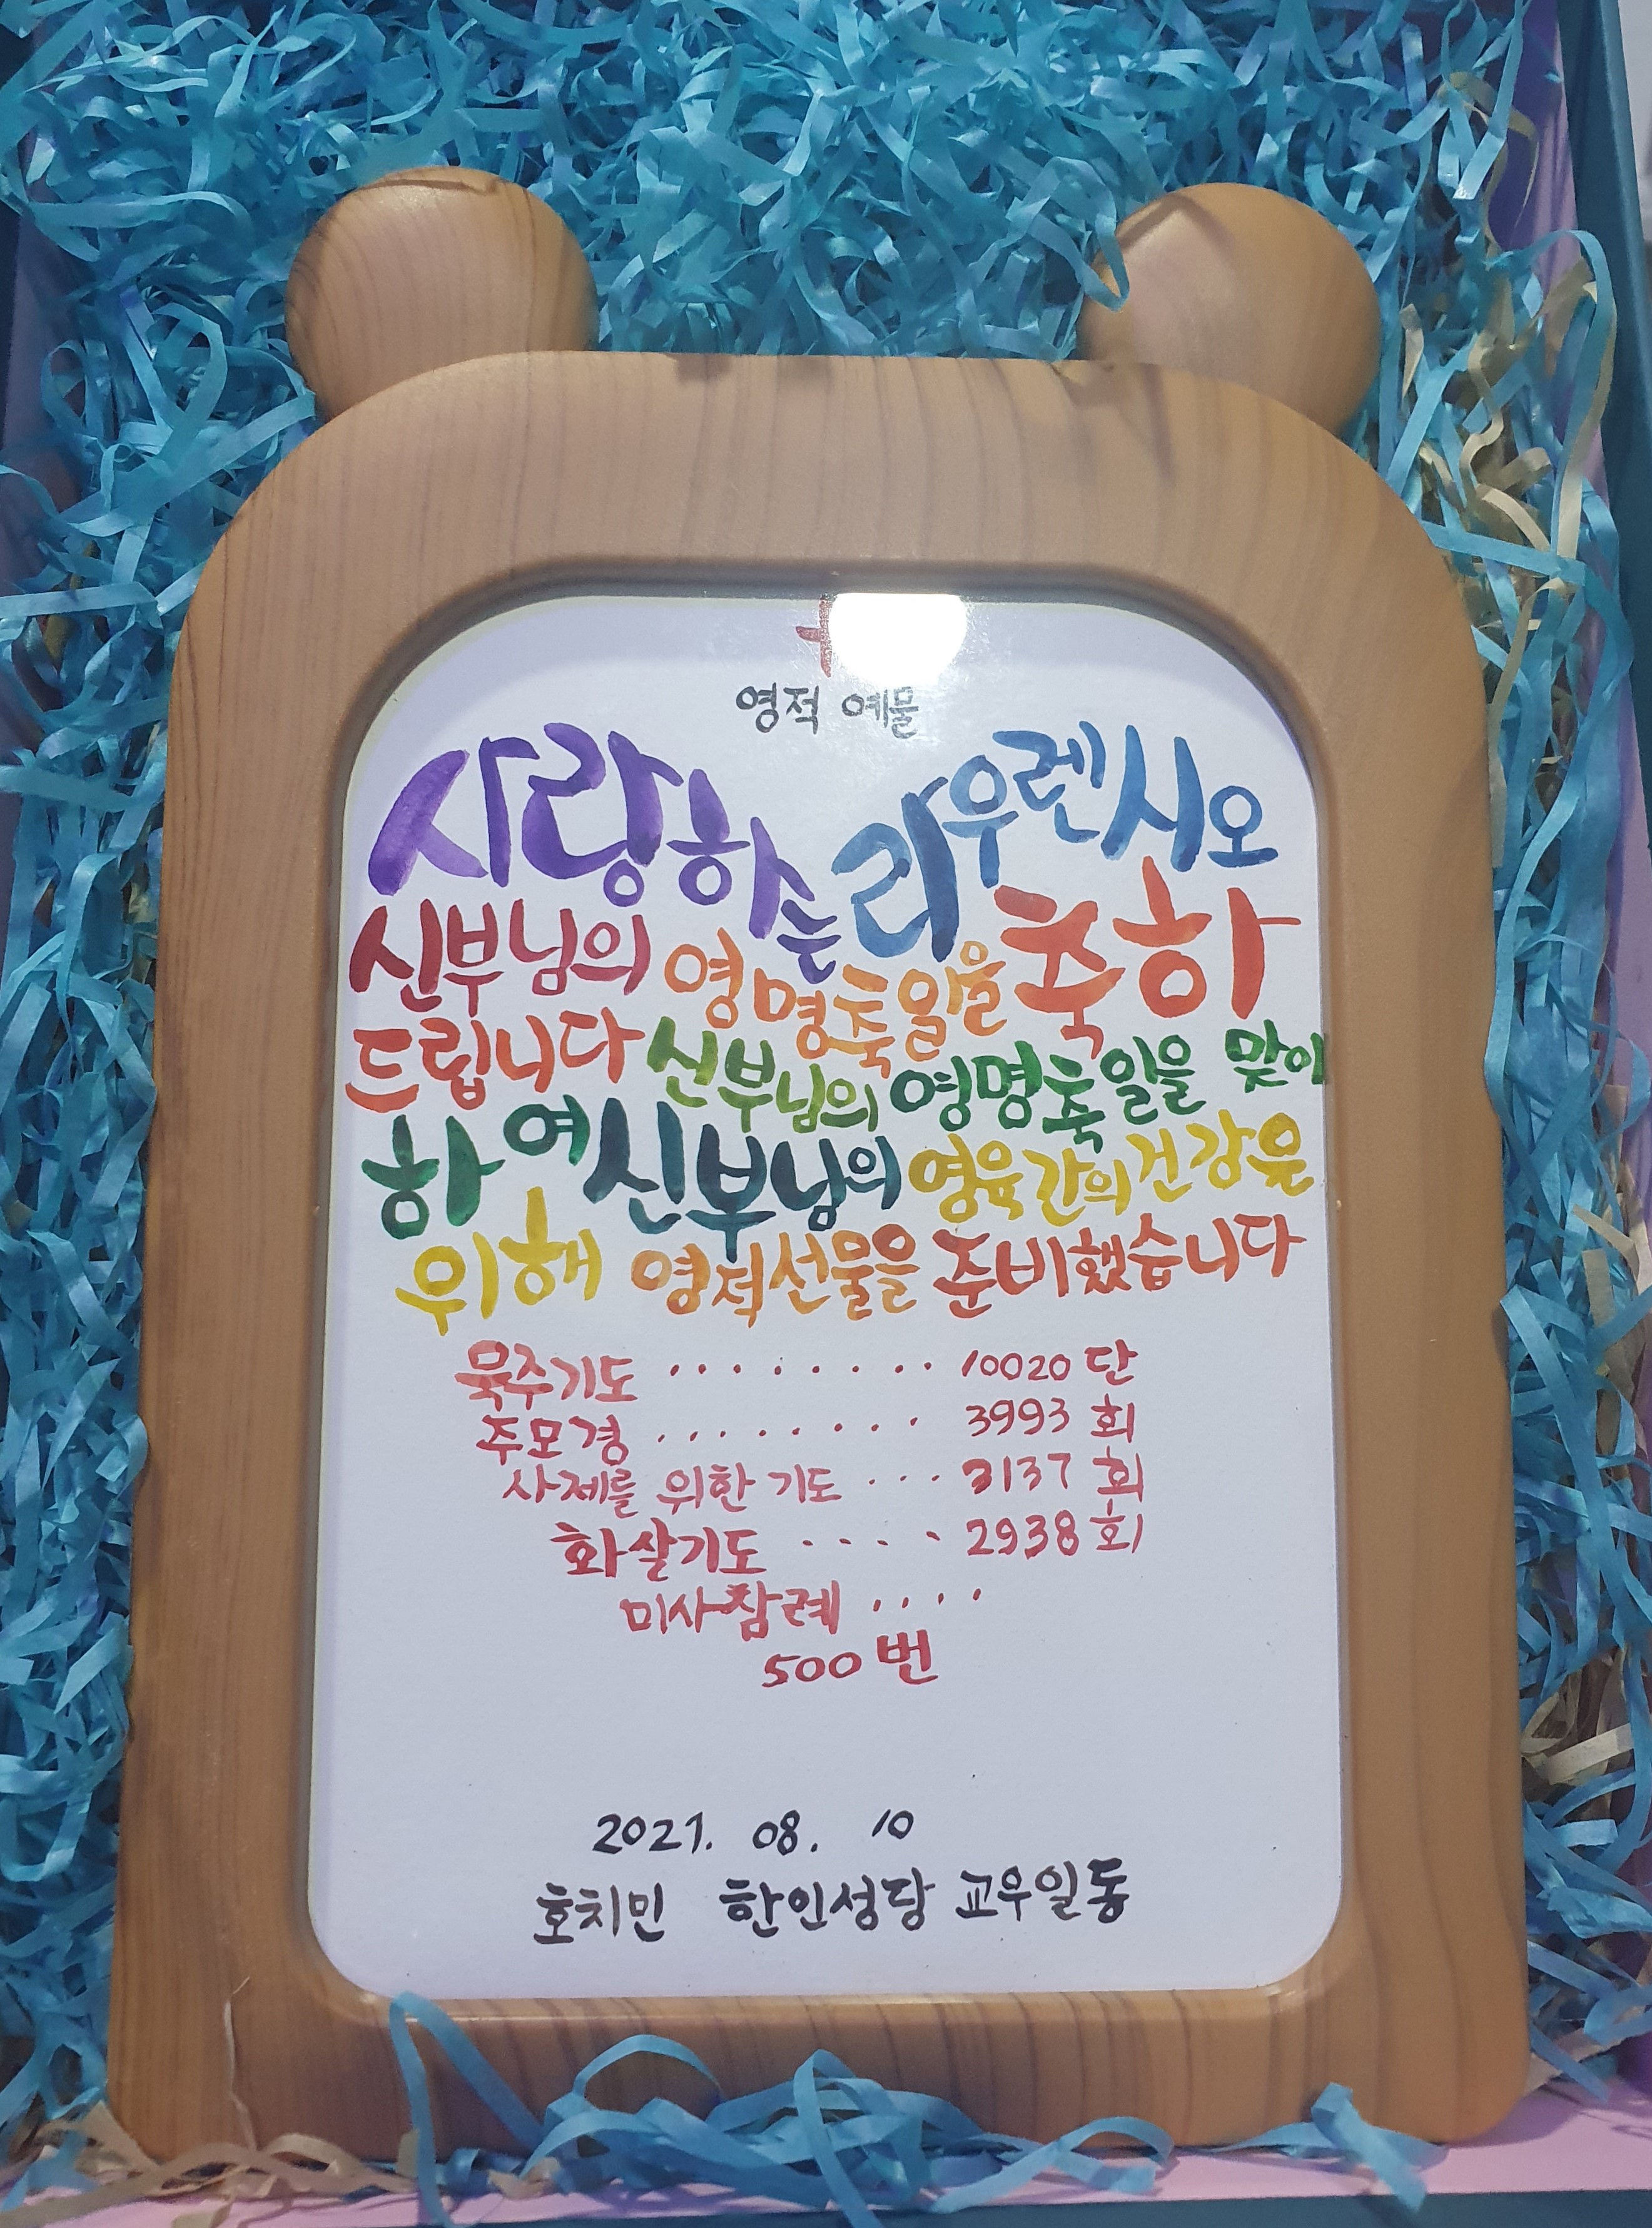 영적 예물
사랑하는 라우렌시오
신부님의 영명축일을 축하
드립니다 신부님의 영명축일을 맞이
하여 신부님의 영육간의 건강을
위해 영적선물을 준비했습니다
묵주기도 ········· 10020 단
주모경 ········ 3993 회
사제를 위한 기도 ··· 3137 회
화살기도 ···· 2938 회
미사참례 ····
500 번
2021. 08. 10
호치민 한인성당 교우일동